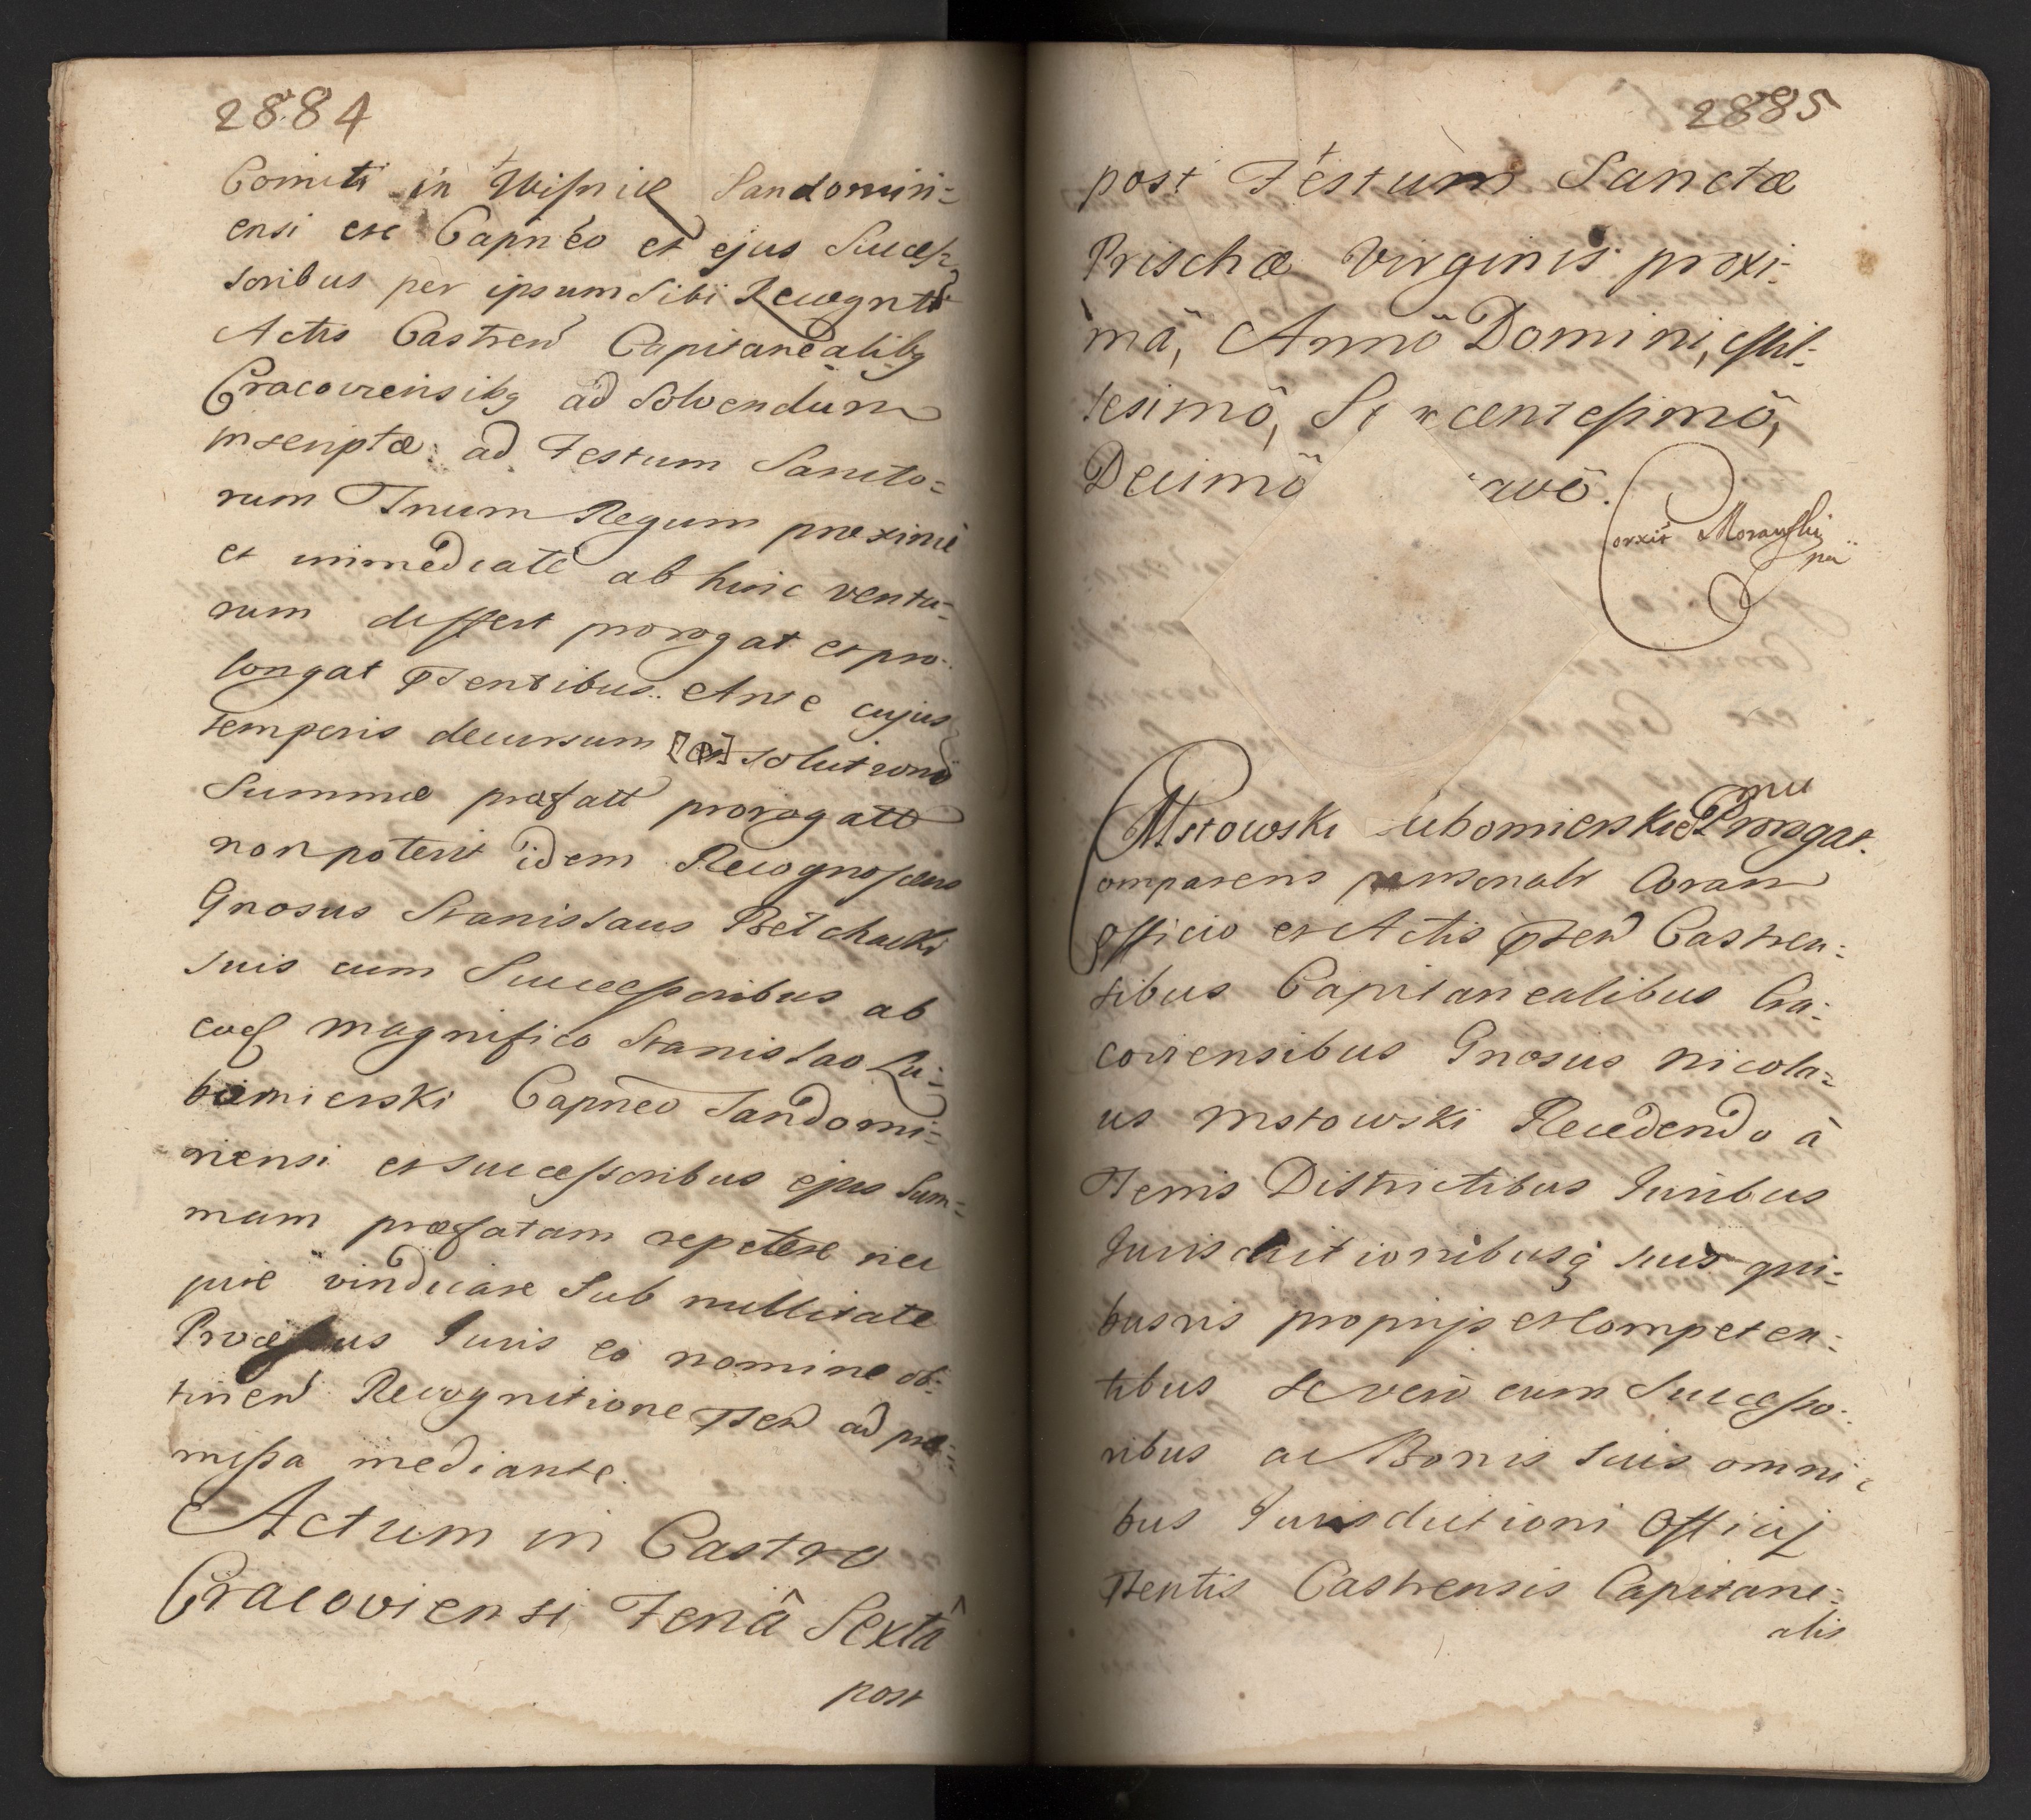 2884
Comiti in Wisnice Sandomiri=
ensi etc Capneo et ejus Success=
soribus per ipsum Sibi Recognitt
Actis Castren Capitanealibq
Cracoviensibq ad Solvendum
inscriptæ ad Festum Sancto=
rum Trium Regum proxime
et immediate ab hinc ventu=
rum differt prorogat et pro=
longat Pntentibus. Ante cujus
temporis decursum [et] solutione
Summæ præfatt prorogatt
non poterit idem Recognoscens
Gnosus Stanislaus Belchacki
suis cum Successoribus ab
eod Magnifico Stanislao Lu=
bomierski Capneo Sandomi=
riensi et successoribus ejus Sum=
mam præfatam repetere nec
jure vindicare Sub nullitate
Processus Juris eo nomine ob=
tinen Recognitione Pnten ad præ=
missa mediante.
Actum in Castro
Cracoviensi Feriâ Sextâ
post
2885
post Festum Sanctæ
Prischæ Virginis proxi=
mâ, Annô Domini, Mil=
lesimô, centesimô,
Decimô avô.
Corxit Morawski
mpr
Mstowski ubomierskie Prorogat.
mu
Comparens personalr Coram
officio et Actis Pnten Castren=
sibus Capitanealibus Cra=
coviensibus Gnosus Nicola=
us Mstowski Recedendo à
Terris Districtibus Juribus
Jurisdictionibusq suis qui=
busvis proprijs et Competen=
tibus Se vero cum Successo=
ribus ac Bonis Suis omni=
bus Jurisdictioni Officij
Pntentis Castrensis Capitane=
alis